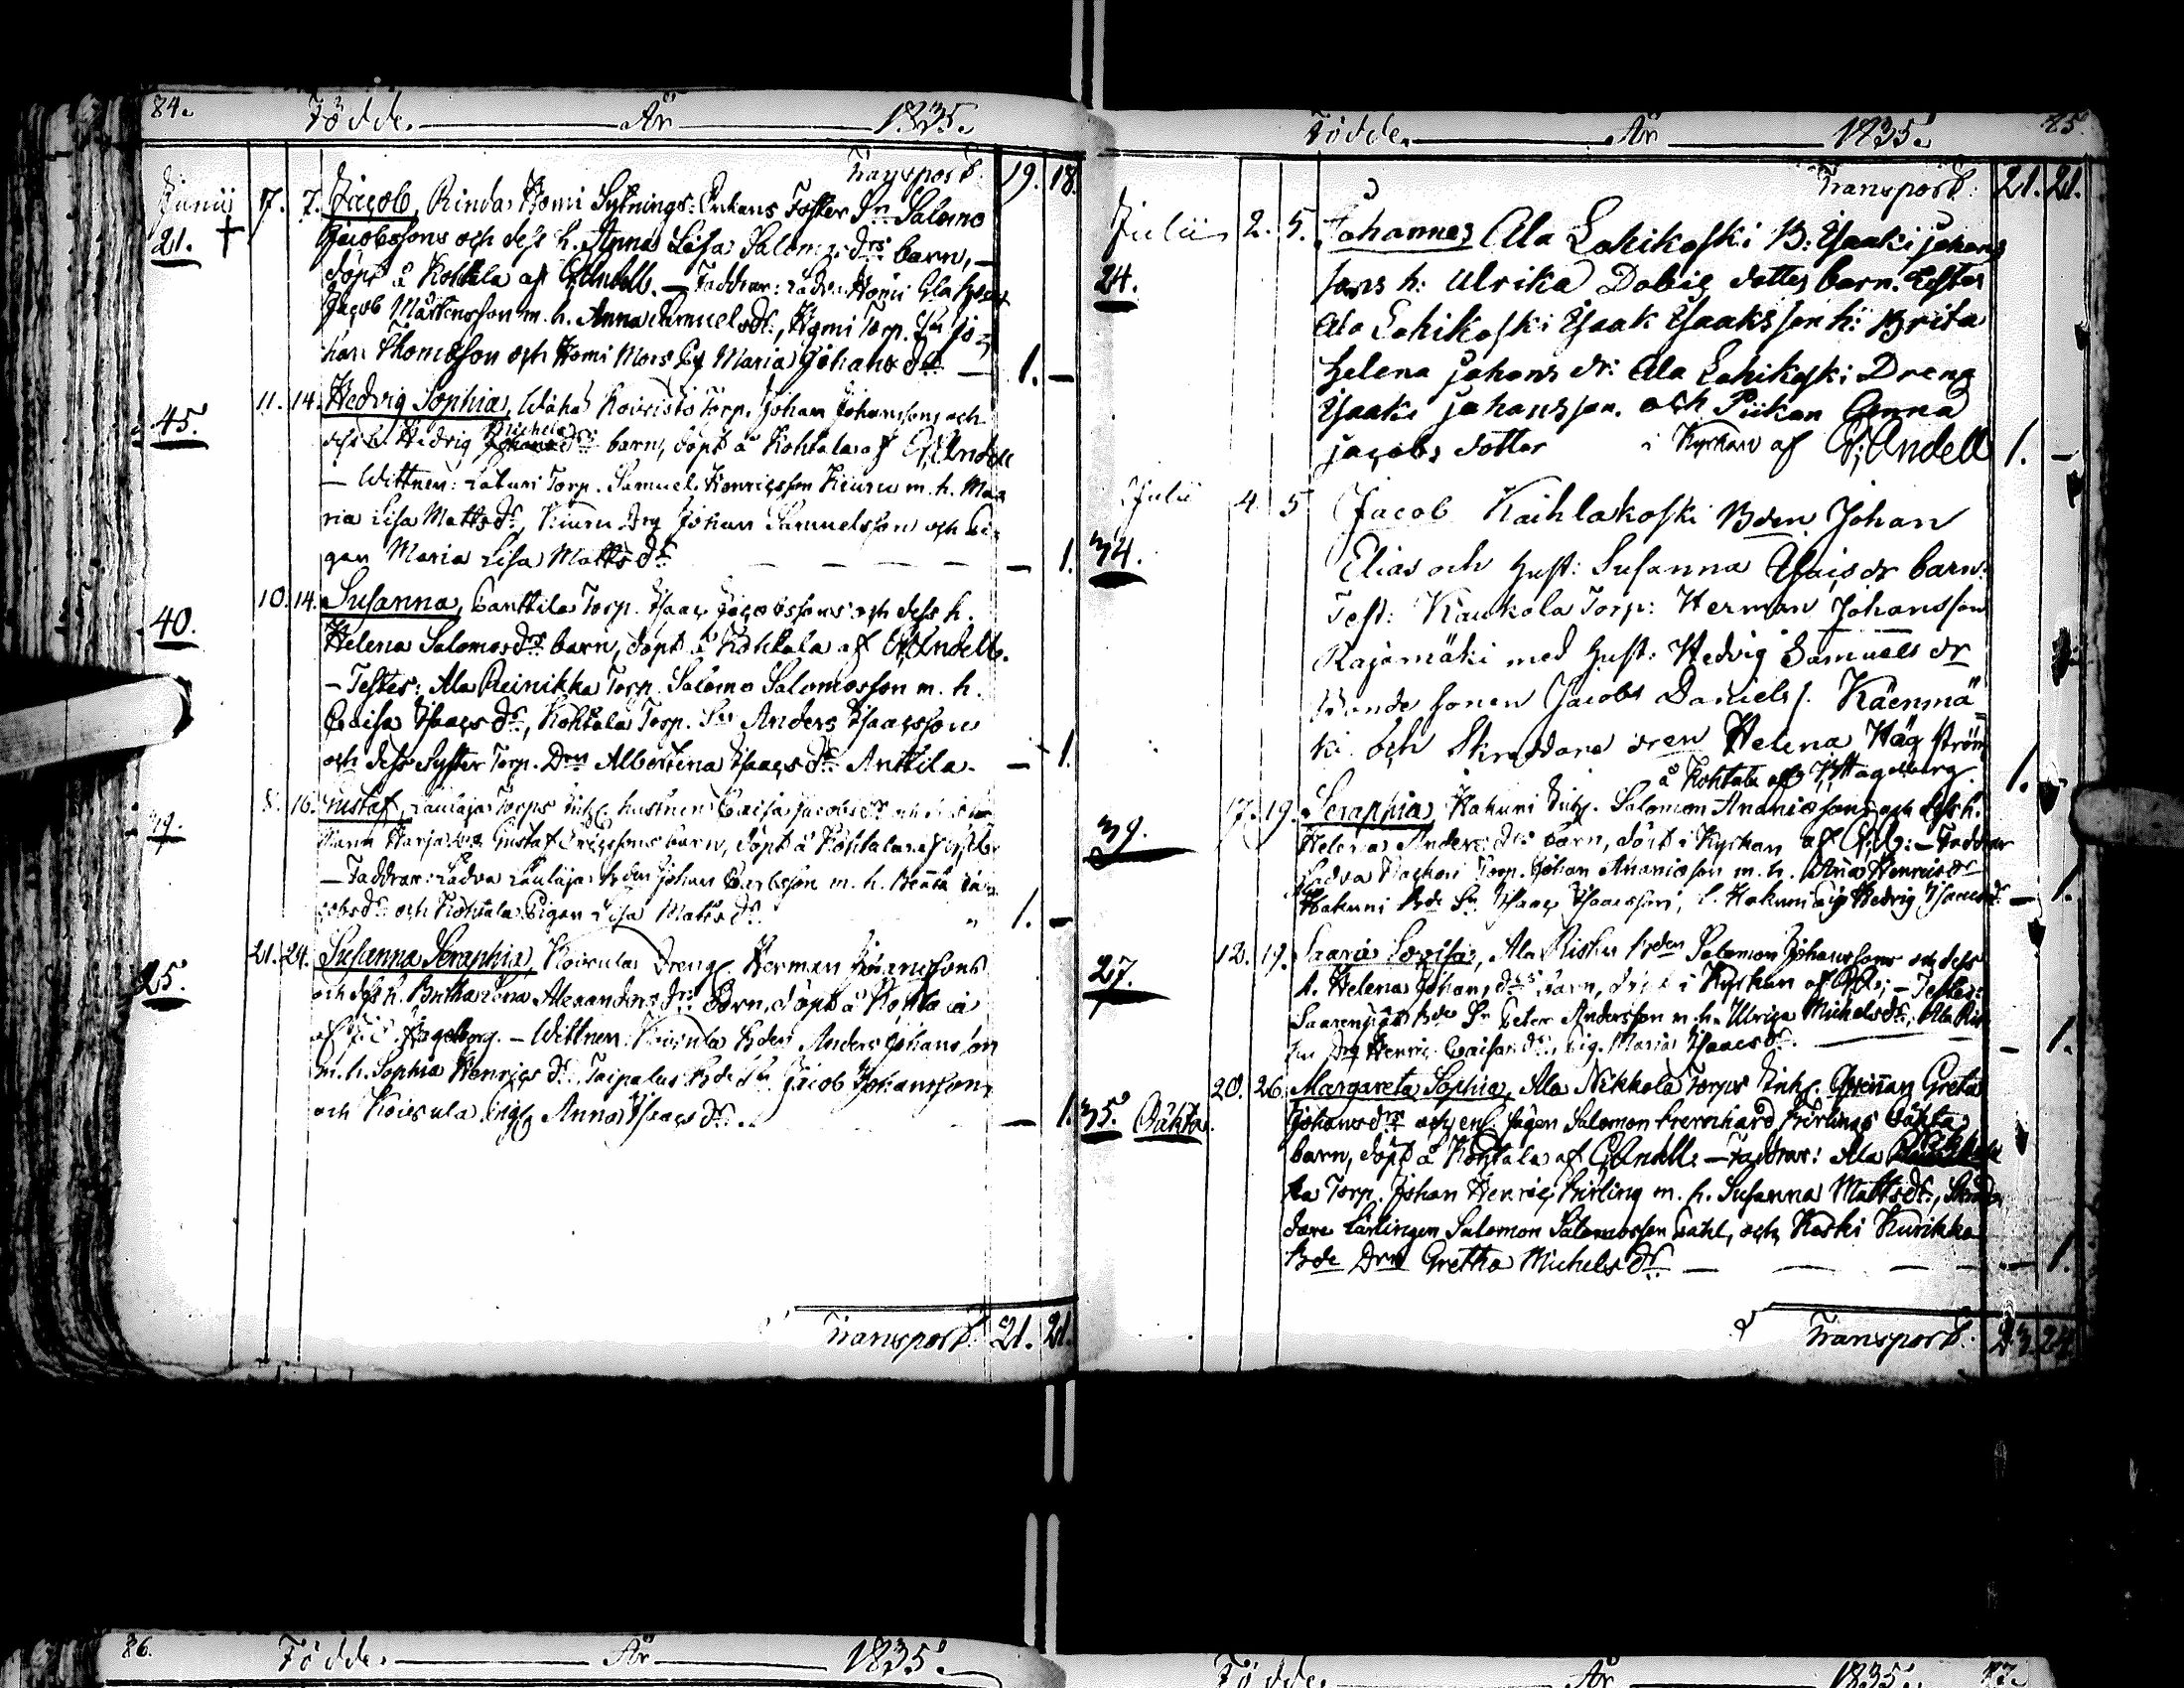 84. Födde. År 1835.
Transport. 19. 18.
Junii 7. 7. Jacob, Rinda Homi Sytnings Enkans Foster Sn Salomo
21. Jacobssons och dess h. Anna Lisa Salom. drs barn, —
döpt å Kohtala af G. Andell. — Faddrar: Ladva Homi
Jacob Mårtensson m. h. Anna Samuelsdr., Homi Torp. Sn Jo=
han Thomsson och Homi Maria Johansdr — 1. —
11. 14. Hedvig Sophia, Wäha Koivisto Torp. Johan Johanssons och
45. dess h. Hedvig Michels dr: barn, döpt å Kohtala af G. Andell
— Wittnen: Laturi Torp. Samuel Henricsson Keuru m. h. Ma=
ria Lisa Mattsdr, Keuru Drg Johan Samuelsson och Pi=
gan Maria Lisa Mattsdr. — — — — — 1.
10. 14. Susanna, Torp. Isaac Jacobssons och dess h.
40. Helena Salomonsdrs barn, döpt å Kohtala af G. Andell.
— Testes: Ala Reinikka Torp. Salomo Salomosson m. h.
Caisa Isaacsdr, Kohtala Torp. Sn Anders Isaacsson
och dess Syster Torp. Drn Albertina Isaacsdr Anttila. — 1.
8. 16. Gustaf, Laulaja Torps Inh. hustrun Caisa Jacobsdr och
Gustaf Ericssons barn, döpt å Kohtala af
— Faddrar: Ladva Laulaja Bden Johan Carlsson m. h.
cobsdr. och Kohtala Pigan Lisa Mattsdr. 1. —
21. 24. Susanna Seraphia, Koivula Dreng. Herman Johanssons
25. och dess h. Britha Lena Alexandersdrs Barn, döpt å Kohtala
af Hageberg. — Wittnen: Koivula Bden Anders Johansson
m. h. Sophia Henricsdr., Taipalus Bde Sn Jacob Johansson,
och Koivula Anna Isaacsdr. — 1.
Transport. 21. 21.
Födde. År 1835. 85
Transport. 21. 21.
Julii 2. 5. Johannes Ala Lohikoski B: Isaaki johans
24. sons h: Ulrika Dabig dotter barn. Testes
Ala Lohikoski Isaak Isaaksson h: Brita
Helena johans dr: Ala Lohikoski Dreng
Isaaki johansson. och Piikan Anna
jacobs dotter i Kyrkan af G. Andell 1. —
Julii 4. 5 Jacob Kaihlakoski Bden Johan
34. Elias och Hust: Susanna Isacs dr barn:
Test: Kaukola Torp: Herman Johansson
Rajamäki med Hust: Hedvig Samuels dr
Bonde sonen Jacob Daniels s. Käenmä=
ki och Skreddare dren Helena Hägström
å Kohtala af Hageberg. 1.
17. 19. Seraphia, Hakuni Inh. Salomon Ananiassons och dess h.
39. Helena Anders drs barn, döpt i Kyrkan af G. A: — Faddrar
Ladva Torp. Johan Ananiasson m. h. Anna Henricsdr
Hakuni Bde Sn Isaac Isaacsson, Hakuni Pig. Hedvig Isaacsdr. — 1.
12. 19. Maria Lovisa, Ala Risku Bden Salomon Johanssons och dess
27. h. Helena Johansdrs barn, döpt i Kyrkan af G. A: — Testes:
Bde Sn Peter Andersson m. h. Ulrica Michelsdr., Ala Ris
ku Drg Henric, Pig. Maria Isaacsdr. — 1.
20. 26. Margareta Sophia, Ala Nikkola Torps Inh. Qvinnan Greta
35. Oäkta. Johansdrs och enl. sägen Salomon Bernhard Birlings Oäkta
barn, döpt å Kohtala af G. Andell. — Faddrar: Ala
la Torp. Johan Henric Birling m. h. Susanna Mattsdr.,
dare Lärlingen Salomon Salomosson, och Koski Kurikka
Bde Drn Gretha Michelsdr. — — — — 1.
Transport. 23. 24.
86. Födde. År 1835.
Födde. År 1835. 87.